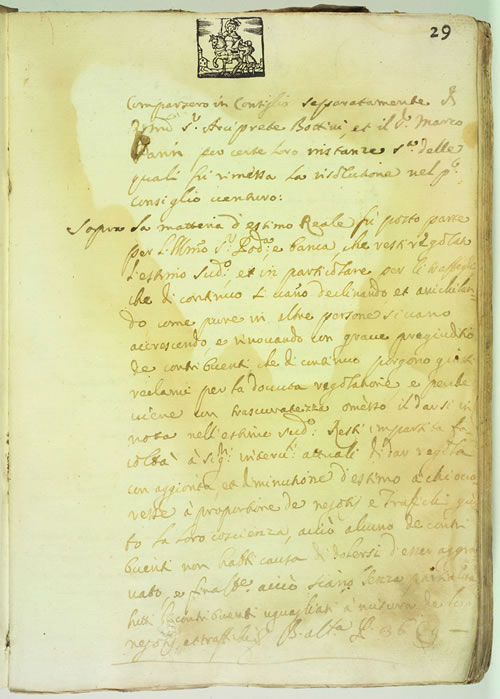 29
Comparzero in Consiglio separatamente il
Sr. Arciprete Bottini, et il Sr. Marco
per certe loro instanze sopra delle
quali fu rimessa la risolutione nel po.
Consiglio venturo:
Sopra la matteria d'estimo Reale fu posto parte
per l'Illmo. Sr. Podà. e banca, che resti regolat
l'estimo sudo. et in particolare per li traffichi
che di continuo si vano declinando et anichilan-
do come pure in altre persone si vano
accrescendo e rinovando con grave pregiuditio
de contribuenti che di continuo porgono giusti
reclami per la dovuta regolatione e perche
viene con trascuratezza omesso il darsi in
nota nell'estimo sudo: Resti impartita fa
coltà à Sigri. attuali di dar regola
con aggionta, et diminutione d'estimo à chi occo
resse à proportione de negotij e trafichi giu
to la loro coscienza, acciò alcuno de contri
buenti non habbi causa di dolersi d'esser aggra
vato, e acciò siano senza
tutti li contribuenti uguagliati à misura de loro
negotij, et traffichi